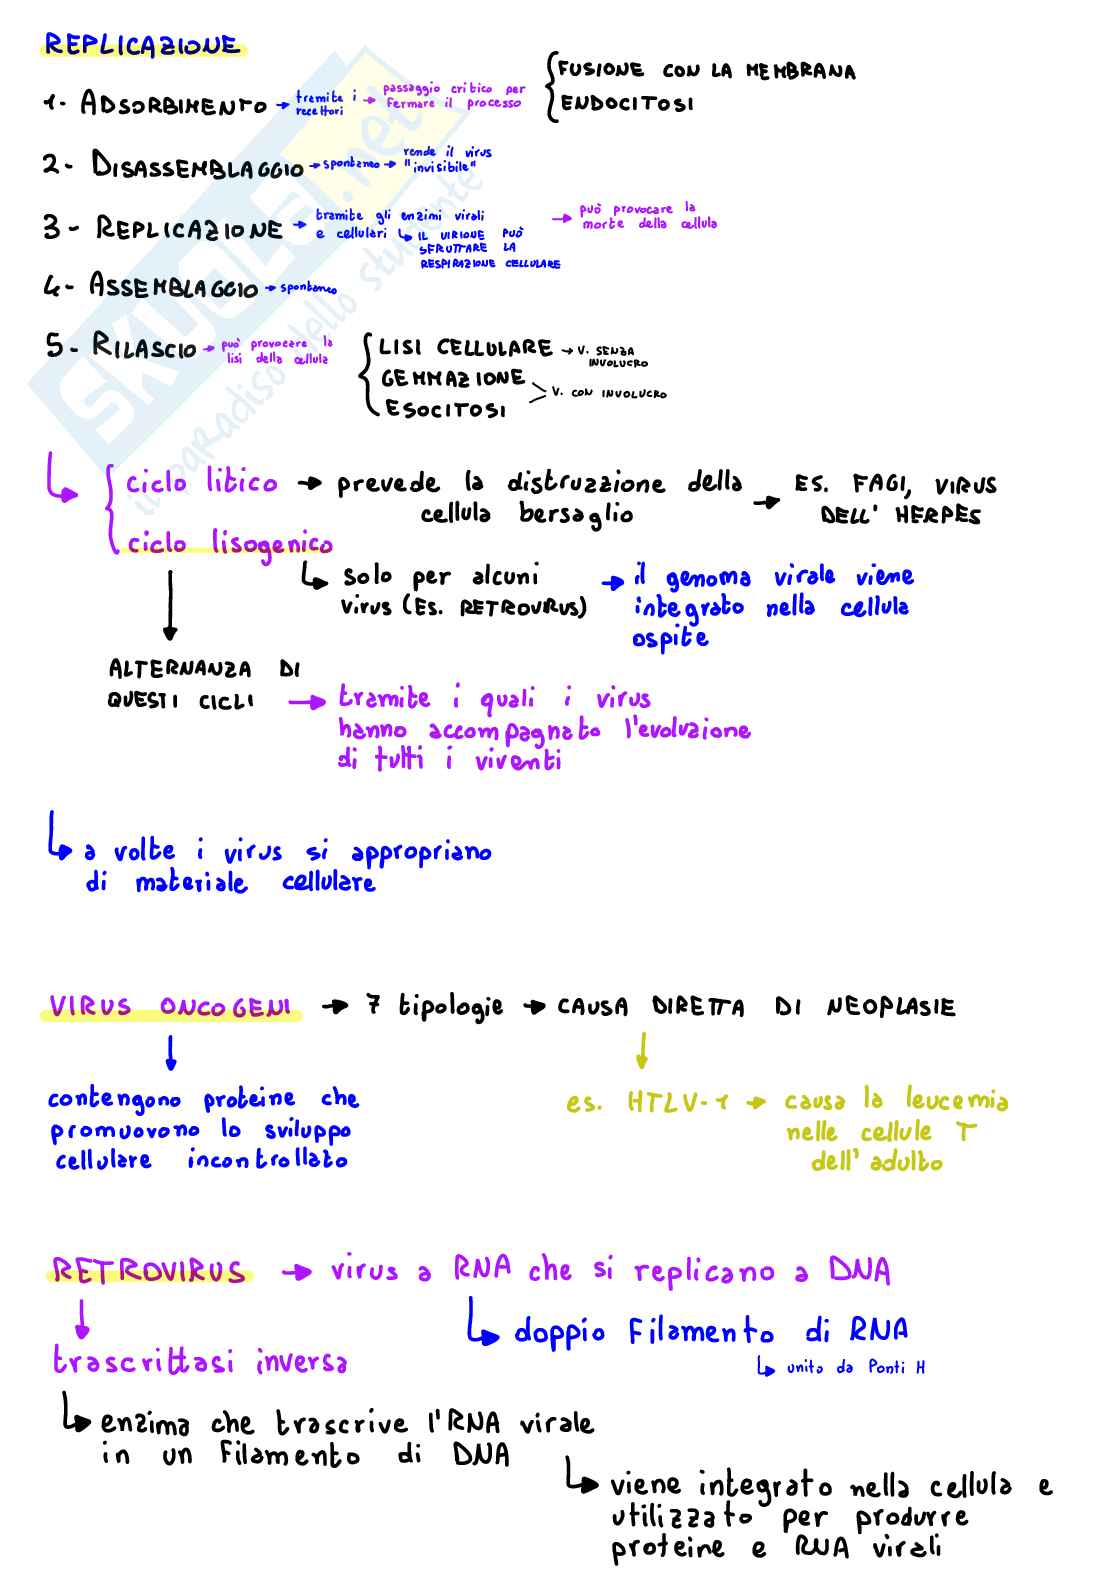 REPLICAZIONE
1- ADSORBIMENTO → tramite i recettori → passaggio critico per fermare il processo
{ FUSIONE CON LA MEMBRANA
ENDOCITOSI
2- DISASSEMBLAGGIO → spontaneo → rende il virus "invisibile"
3- REPLICAZIONE → tramite gli enzimi virali e cellulari → può provocare la morte della cellula
↳ IL VIRIONE PUÒ
SFRUTTARE LA
RESPIRAZIONE CELLULARE
4- ASSEMBLAGGIO → spontaneo
5- RILASCIO → può provocare la lisi della cellula
{ LISI CELLULARE → V. SENZA INVOLUCRO
GEMMAZIONE
ESOCITOSI
V. CON INVOLUCRO
SKUOLA.net
il paradiso dello studente
↳ { ciclo litico → prevede la distruzione della
cellula bersaglio
→ ES. FAGI, VIRUS
DELL' HERPES
ciclo lisogenico
↳ solo per alcuni
virus (ES. RETROVIRUS)
→ il genoma virale viene
integrato nella cellula
ospite
ALTERNANZA DI
QUESTI CICLI
→ tramite i quali i virus
hanno accompagnato l'evoluzione
di tutti i viventi
↳ a volte i virus si appropriano
di materiale cellulare
VIRUS ONCOGENI → 7 tipologie → CAUSA DIRETTA DI NEOPLASIE
contengono proteine che
promuovono lo sviluppo
cellulare incontrollato
es. HTLV-1 → causa la leucemia
nelle cellule T
dell' adulto
RETROVIRUS → virus a RNA che si replicano a DNA
↳ doppio filamento di RNA
↳ unito da Ponti H
trascrittasi inversa
↳ enzima che trascrive l'RNA virale
in un filamento di DNA
↳ viene integrato nella cellula e
utilizzato per produrre
proteine e RNA virali